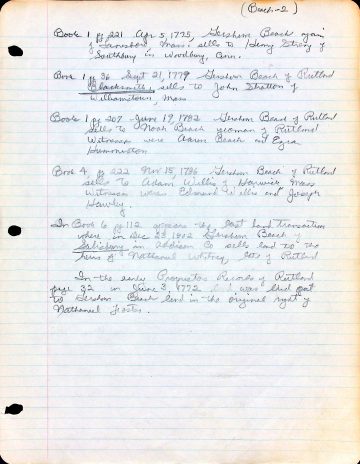 (Beach-2)
Book 1 pg 221 Apr 5, 1775, Gershom Beach again
of Lanesboro Mass. sells to Henry Strong of
Southbury in Woodbury, Conn.
Book 1 pg 36 Sept 21, 1779 Gershom Beach of Rutland
Blacksmith, sells to John Stratton of
Williamstown, Mass
Book 1 pg 207 June 19, 1782 Gershom Beach of Rutland
sells to Noah Beach yeoman of Rutland
Witnesses were Aaron Beach and Ezra
Humeriston
Book 4 pg 222 Nov 15, 1786 Gershom Beach of Rutland
sells to Adam Willis of Harwick Mass
Witnesses were Edward Willis and Joseph
Hawley.
In Book 6 pg 112 appears the last land transaction
where in Dec 23, 1802 Gershom Beach of
Salisbury in Addison Co sells land to the
heirs of Nathaniel Whitney, lots of Rutland
In the early Proprietors Records of Rutland
page 32 in June 3, 1772 land was laid out
to Gershom Beach land in the original right of
Nathaniel Foster.